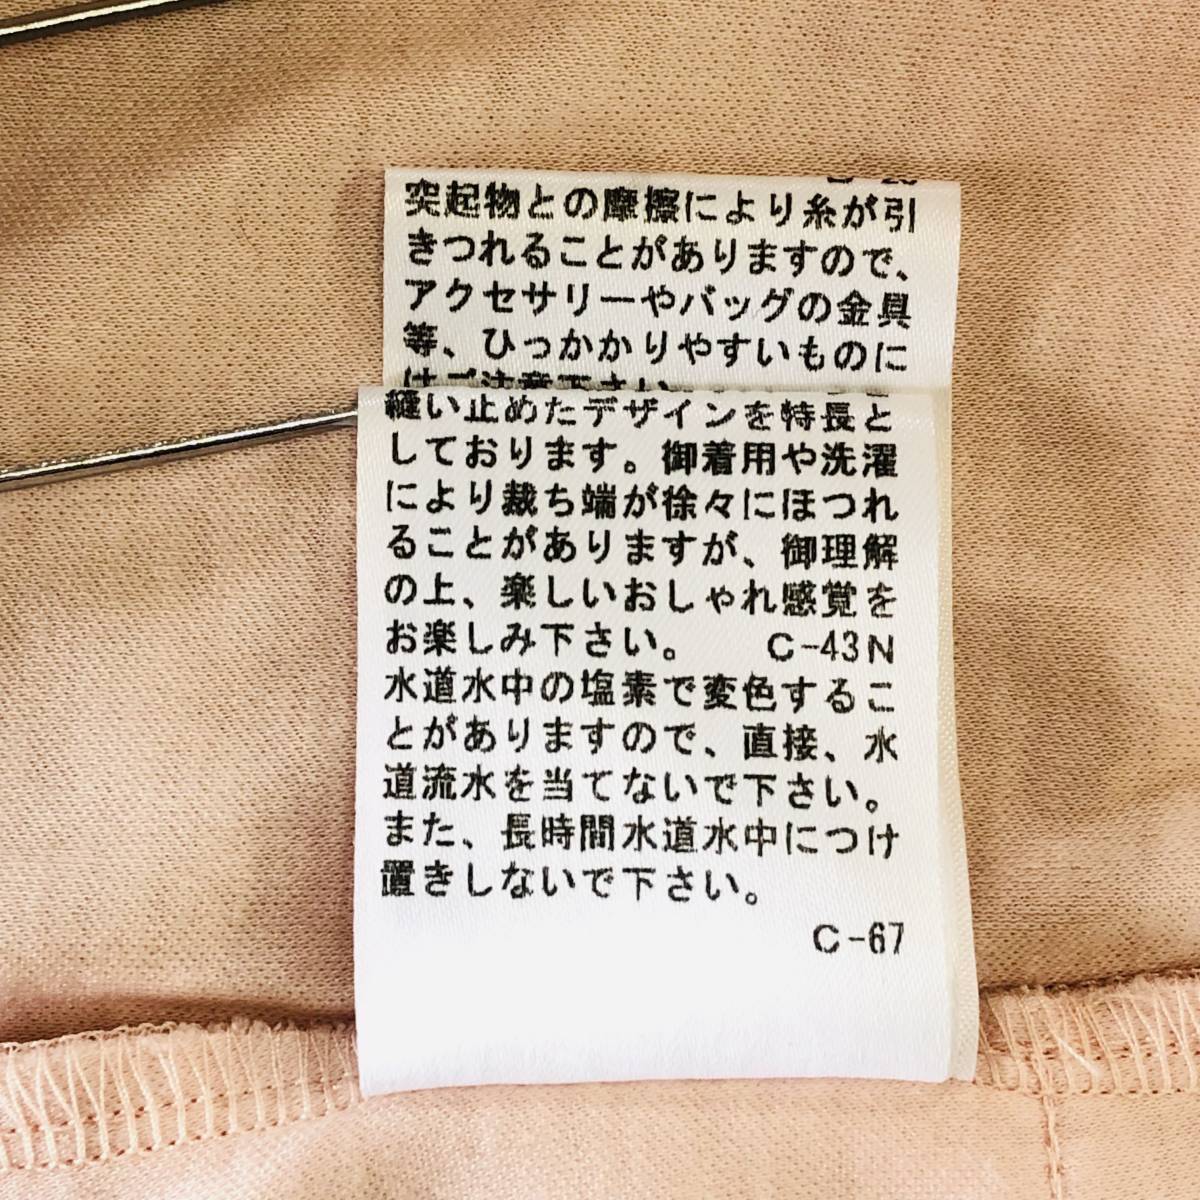 突起物との摩擦により糸が引
きつれることがありますので、
アクセサリーやバッグの金具
等、ひっかかりやすいものに
はご注意下さい。
縫い止めたデザインを特長と
しております。御着用や洗濯
により裁ち端が徐々にほつれ
ることがありますが、御理解
の上、楽しいおしゃれ感覚を
お楽しみ下さい。 C-43N
水道水中の塩素で変色するこ
とがありますので、直接、水
道流水を当てないで下さい。
また、長時間水道水中につけ
置きしないで下さい。
C-67